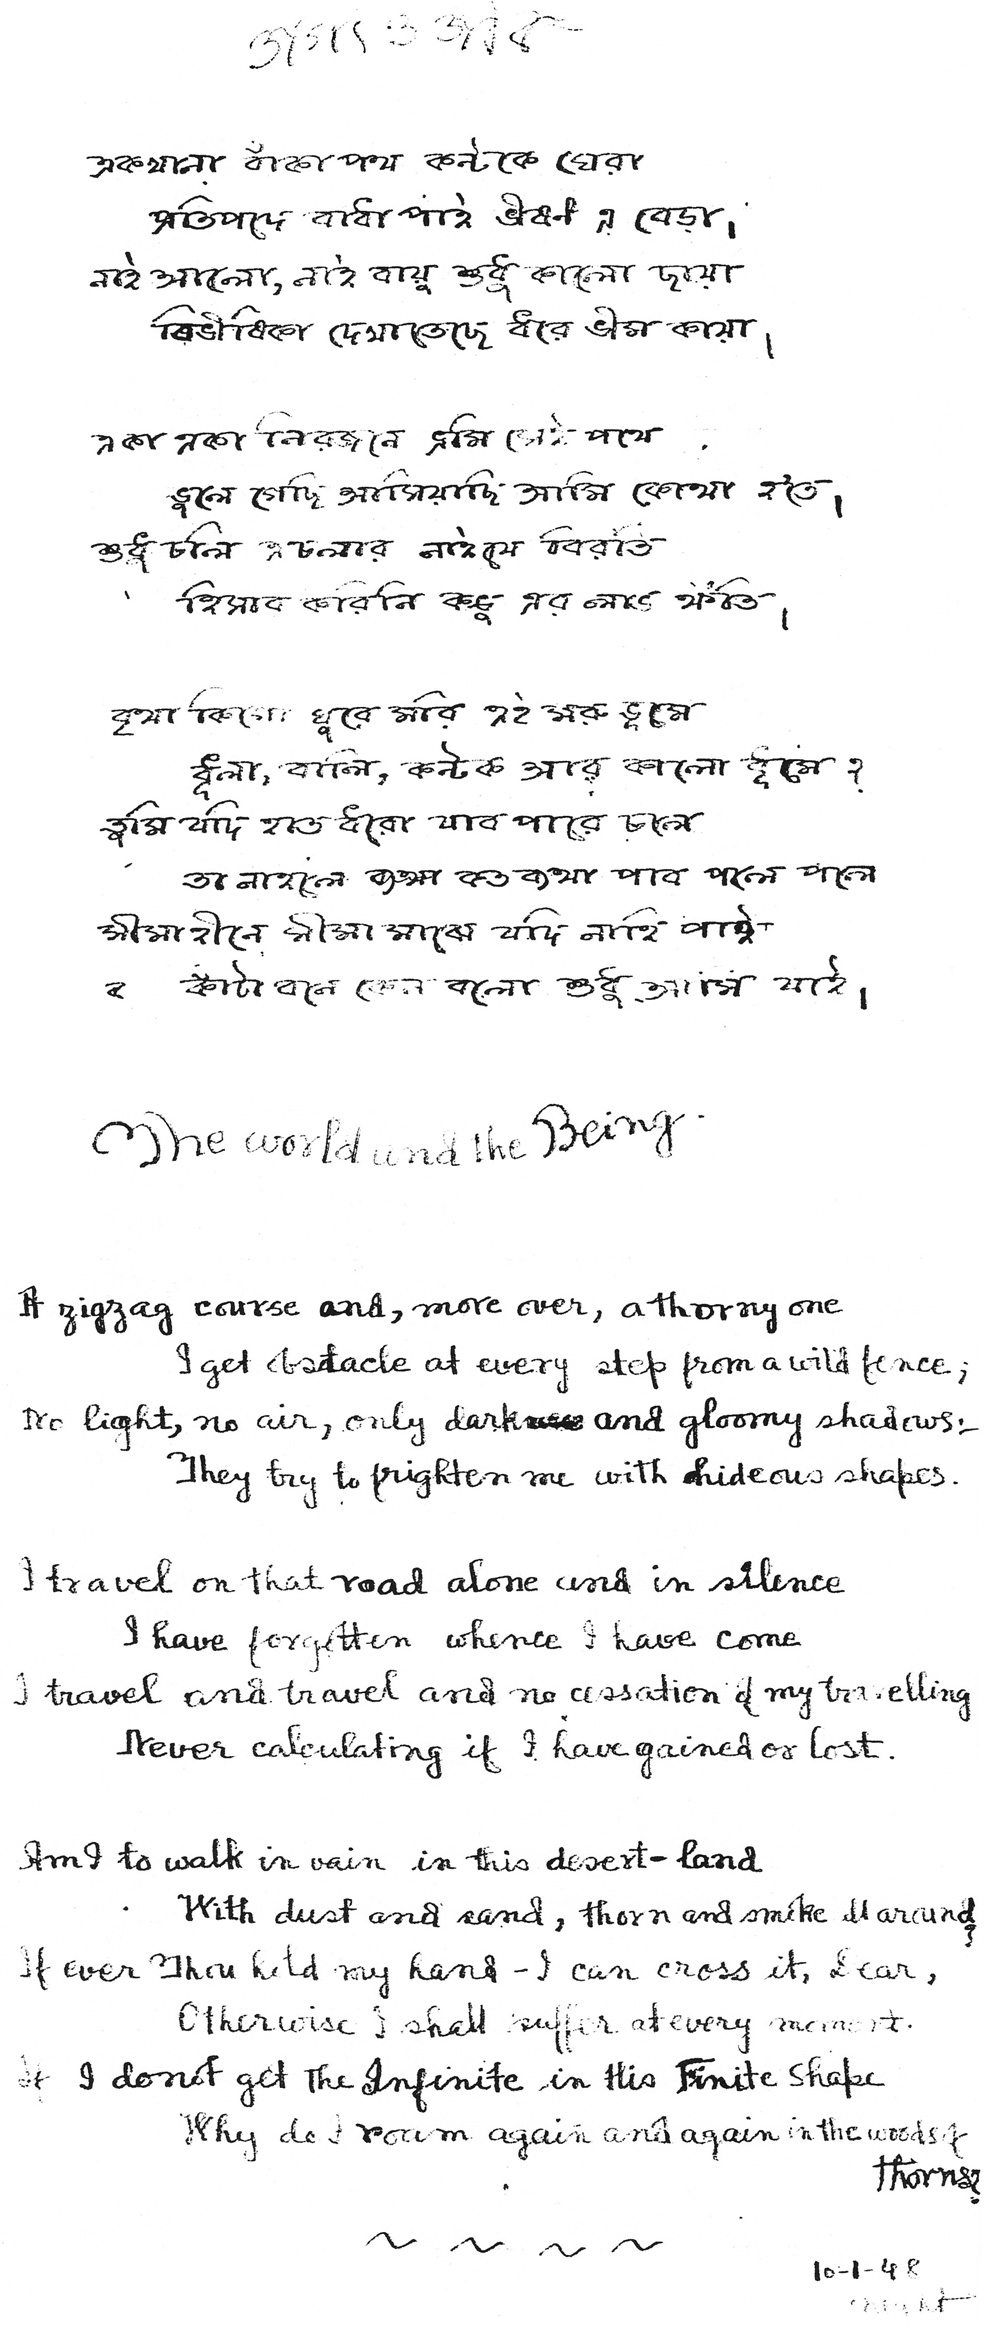 জগৎ ও জীব
একখানা বাঁকা পথ কন্টকে ঘেরা
প্রতিপদে বাধা পাই ভীষণ এ বেড়া।
নাই আলো, নাই বায়ু শুধু কালো ছায়া
বিভীষিকা দেখাতেছে ধরে ভীম কায়া।
একা একা নিরজনে ভ্রমি সেই পথে
ভুলে গেছি আসিয়াছি আমি কোথা হ'তে।
শুধু চলি এ চলার নাই যে বিরতি
হিসাব করিনি কভু এর লাভ ক্ষতি।
বৃথা কিগো ঘুরে মরি এই মরু ভূমে
ধূলা, বালি, কন্টক আর কালো ধূমে?
তুমি যদি হাত ধরো যাব পারে চলে
তা না হলে কত ব্যথা পাব পলে পলে
সীমাহীনে সীমা মাঝে যদি নাহি পাই
কাঁটা বনে কেন বলো শুধু আমি যাই।
The world and the Being.
A zigzag course and, more over, a thorny one
I get obstacle at every step from a wild fence;
No light, no air, only dark and gloomy shadows:-
They try to frighten me with hideous shapes.
I travel on that road alone and in silence
I have forgotten whence I have come
I travel and travel and no cessation of my travelling
Never calculating if I have gained or lost.
Am I to walk in vain in this desert-land
With dust and sand, thorn and smoke all around?
If ever Thou hold my hand - I can cross it, Dear,
Otherwise I shall suffer at every moment.
If I do not get The Infinite in His Finite Shape
Why do I roam again and again in the woods of
thorns?
10-1-48
night